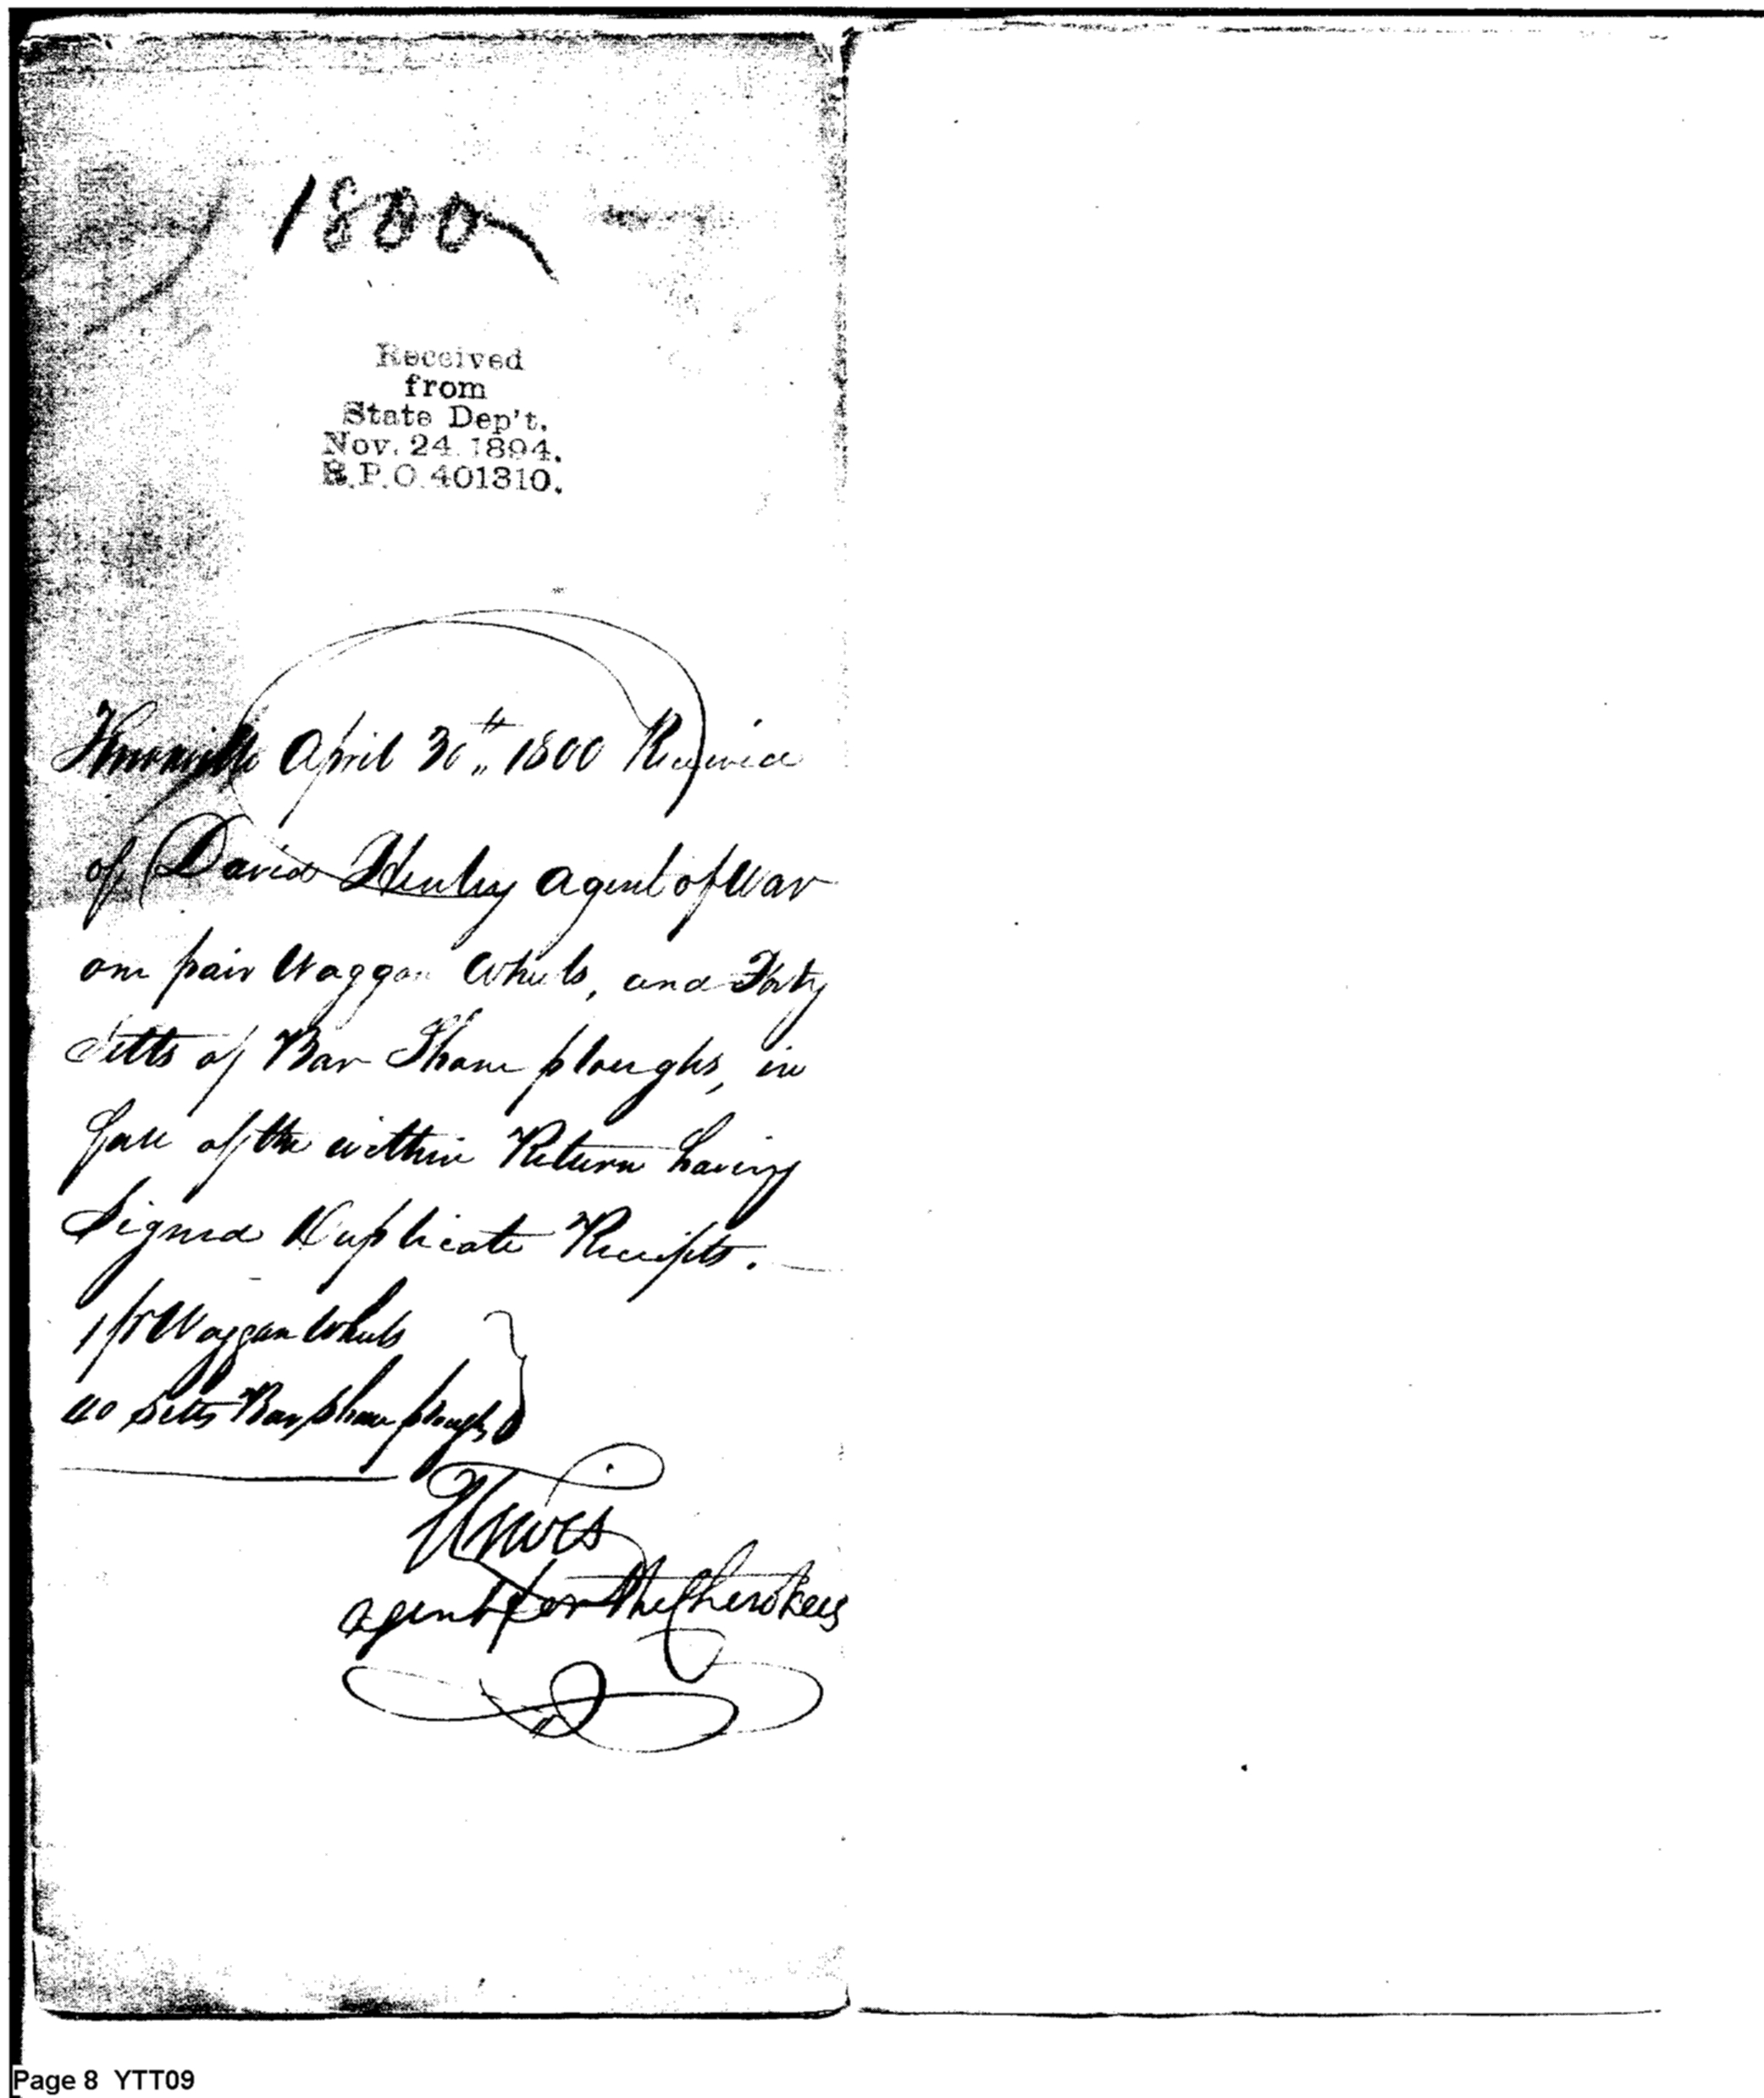 1800
Received
from
State Dep't.
Nov. 24 1894.
R.P.O. 401310.
Knoxville April 30th 1800 Received
of David Henley agent of War
one pair Waggon Wheels, and Forty
Setts of Bar Share ploughs, in
part of the within Return having
Signed Duplicate Receipts.
1 pr Waggon Wheels
40 Setts Bar share ploughs
agent for the Cherokees
Page 8 YTT09